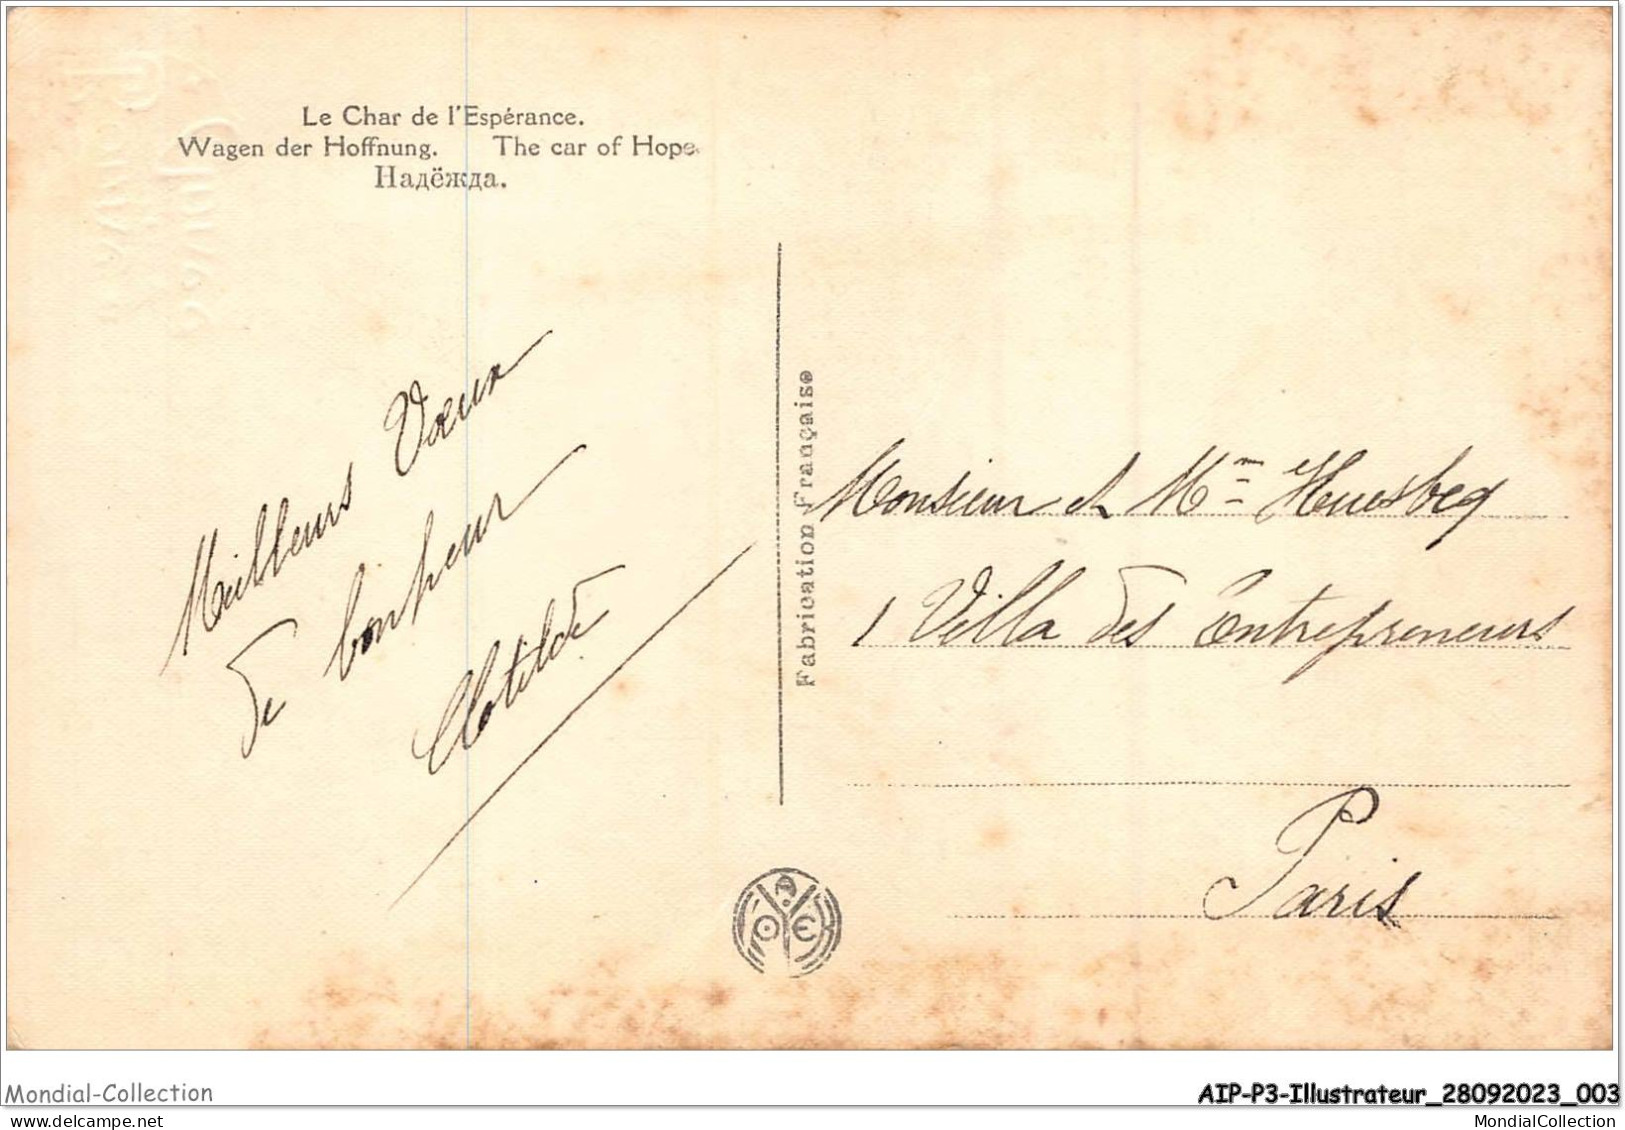 Le Char de l'Espérance.
Wagen der Hoffnung. The car of Hope.
Надёжда.
Meilleurs Vœux
de bonheur
Clotilde
Fabrication Française
Monsieur et Mme
1 Villa des Entrepreneurs
Paris
Mondial-Collection
AIP-P3-Illustrateur_28092023_003
www.delcampe.net
MondialCollection